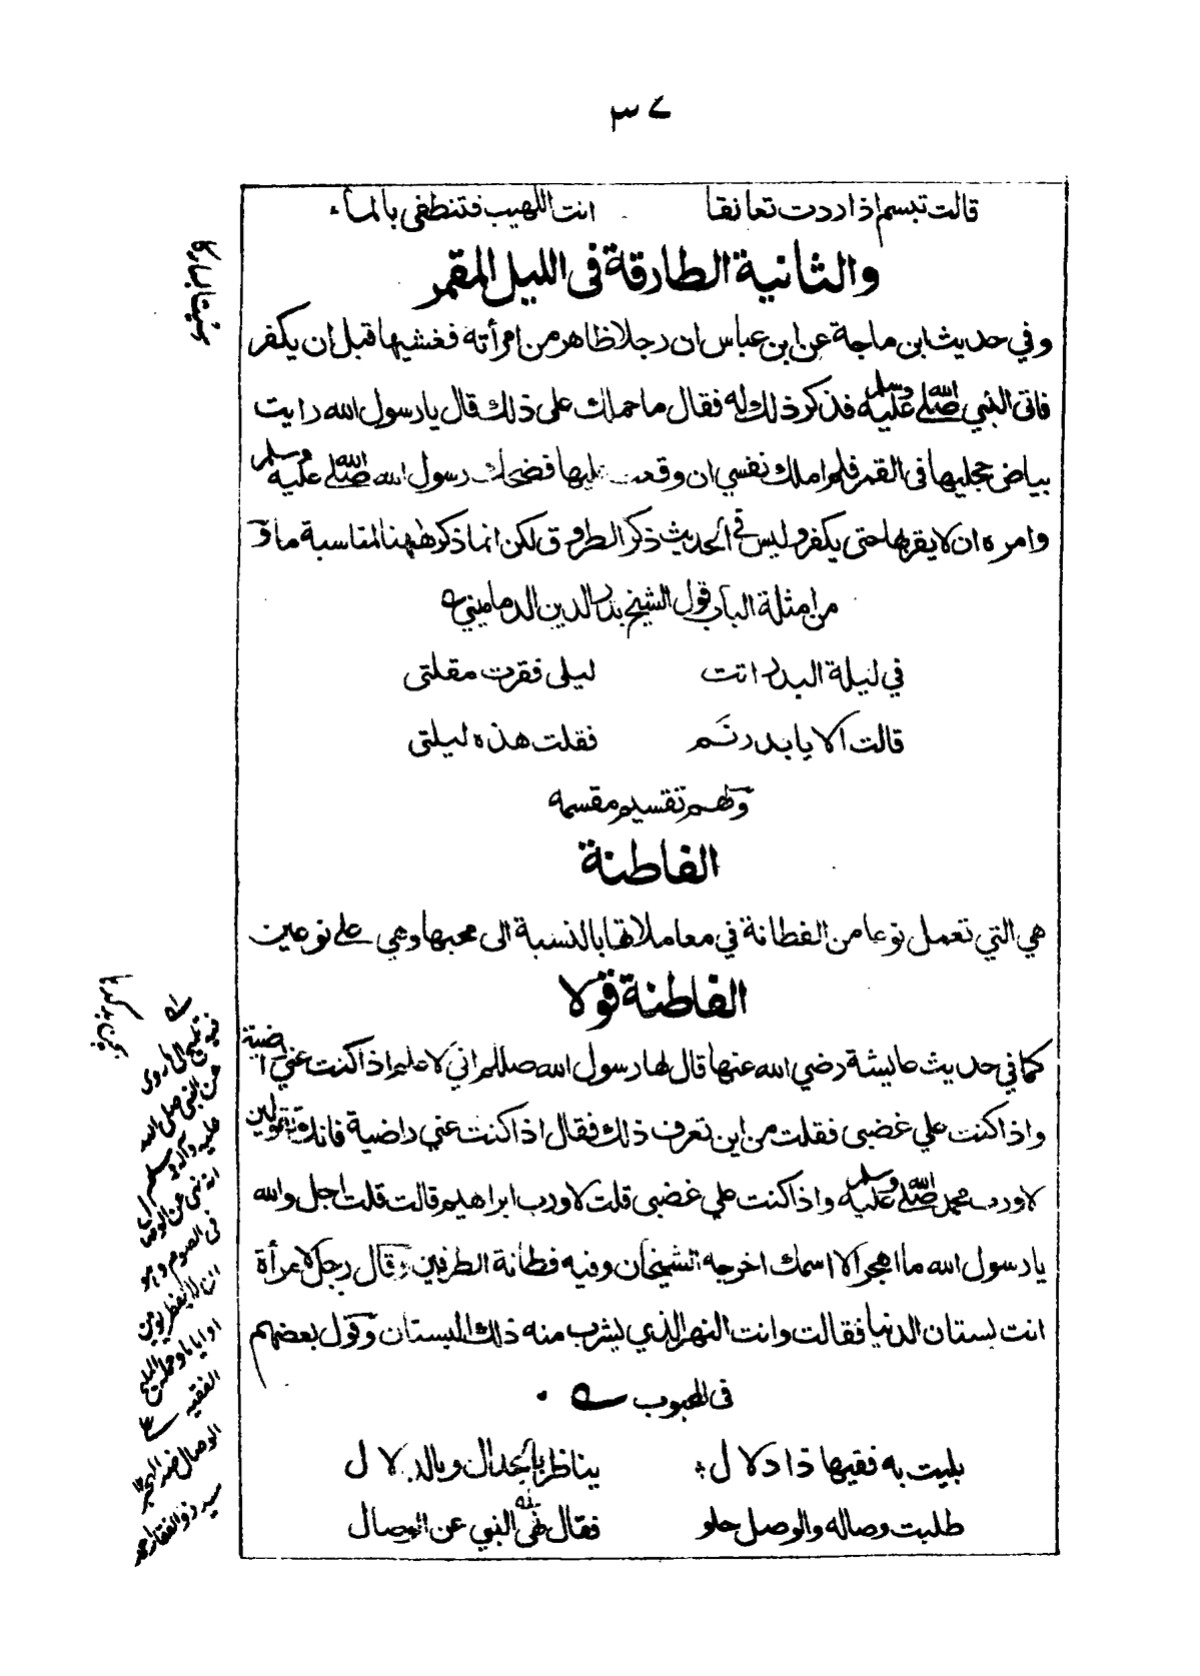 ٣٧
قالت تبسم اذا اردت تعانقا انت اللهيب فتنطفى بالماء
والثانية الطارقة فى الليل المقمر
وفي حديث ابن ماجة عن ابن عباس ان رجلا ظاهر من امرأته فغشيها قبل ان يكفر
فاتى النبي صلى الله عليه وسلم فذكر ذلك له فقال ما حملك على ذلك قال يا رسول الله رايت
بياض حجليها فى القمر فلم املك نفسي ان وقعت عليها فضحك رسول الله صلى الله عليه وسلم
وامره ان لا يقربها حتى يكفر وليس في الحديث ذكر الطروق لكن انما ذكر ههنا لمناسبة ما و
من امثلة الباب قول الشيخ بدر الدين الدماميني
في ليلة البدر اتت ليلى فقرت مقلتى
قالت الا يا بدر نم فقلت هذه ليلتى
ولهم تقسيم مقسمه
الفاطنة
هي التي تعمل نوعا من الفطانة في معاملاتها بالنسبة الى محبها وهي على نوعين
الفاطنة قولا
كما في حديث عايشة رضي الله عنها قال لها رسول الله صللم اني لاعلم اذا كنت عني راضية
واذا كنت علي غضبى فقلت من اين تعرف ذلك فقال اذا كنت عني راضية فانك تقولين
لا ورب محمد صلى الله عليه وسلم واذا كنت علي غضبى قلت لا ورب ابراهيم قالت قلت اجل والله
يا رسول الله ما اهجر الا اسمك اخرجه الشيخان وفيه فطانة الطرفين وقال رجل لامرأة
انت بستان الدنيا فقالت وانت النهر الذي يشرب منه ذلك البستان وقول بعضهم
فى المحبوب
بليت به فقيها ذا دلال يناظر بالجدال وبالدلال
طلبت وصاله والوصل حلو فقال نهى النبي عن الوصال
فيه تلميح الى ما روى
عن النبى صلى الله
عليه وآله وسلم
انه نهى عن الوصال
فى الصوم وهو
ان لا يفطر يومين
او اياما
الفقيه
الوصال ضد الهجر
سيد ذو الفقار احمد